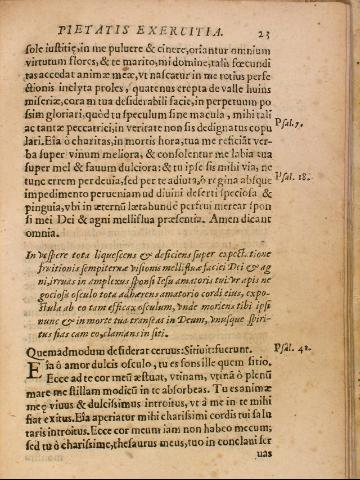 PIETATIS EXERCITIA. 23
sole iustitię, in me puluere & cinere, oriantur omnium
virtutum flores, & te marito, mi domine, talis fœcundi
tas accedat animæ meæ, vt nascatur in me totius perfe
ctionis inclyta proles, quatenus erepta de valle huius
miseriæ, coram tua desiderabili facie, in perpetuum po
ssim gloriari, quòd tu speculum sine macula, mihi tali
ac tantæ peccatrici, in veritate non sis dedignatus copu
Psal. 7.
lari. Eia ô charitas, in mortis hora, tua me reficiāt ver-
ba super vinum meliora, & consolentur me labia tua
super mel & fauum dulciora: & tu ipse sis mihi via, ne
tunc errem per deuia, sed per te adiuta, ô regina absque
Psal. 18.
impedimento perueniam ad diuini deserti speciosa &
pinguia, vbi in æternū lætabundè perfrui merear spon
si mei Dei & agni melliflua præsentia. Amen dicant
omnia.
In vespere tota liquescens & deficiens super expectatione
fruitionis sempiternæ visionis mellifluæ faciei Dei & ag
ni, irruas in amplexus sponsi Iesu amatoris tui: vt apis ne
gociosa osculo tota adhærens amatorio cordi eius, expo-
stula ab eo tam efficax osculum, vnde moriens tibi ipsi
nunc & in morte tua transeas in Deum, vnusque spiri-
tus fias cam eo, clamans in siti.
Quemadmodum desiderat ceruus: Sitiuit: fuerunt.
Psal. 42.
Eia ô amor dulcis osculo, tu es fons ille quem sitio.
Ecce ad te cor meū æstuat, vtinam, vtinā ô plenū
mare me stillam modicū in te absorbeas. Tu es animæ
meę viuus & dulcissimus introitus, vt à me in te mihi
fiat exitus. Eia aperiatur mihi charissimi cordis tui salu
taris introitus. Ecce cor meum iam non habeo mecum;
sed tu ô charissime, thesaurus meus, tuo in conclaui ser
uas